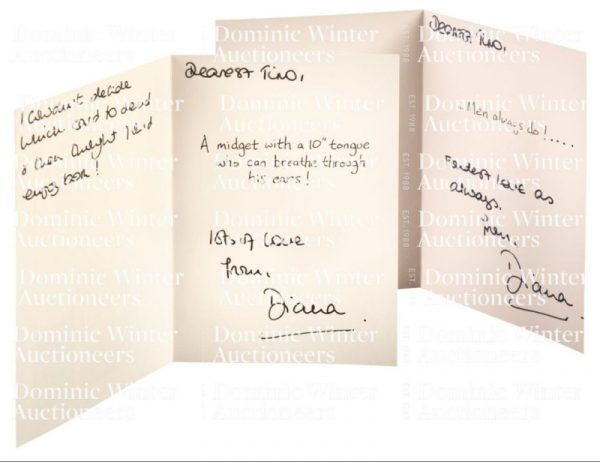 I couldn't decide
which card to send
then thought
enjoy both!
Dearest Tino,
A midget with a 10" tongue
who can breathe through
his ears!
lots of love
from,
Diana
Dearest Tino,
..Men always do!.....
Fondest love as
always,
from,
Diana
Dominic Winter
Auctioneers
EST. 1988